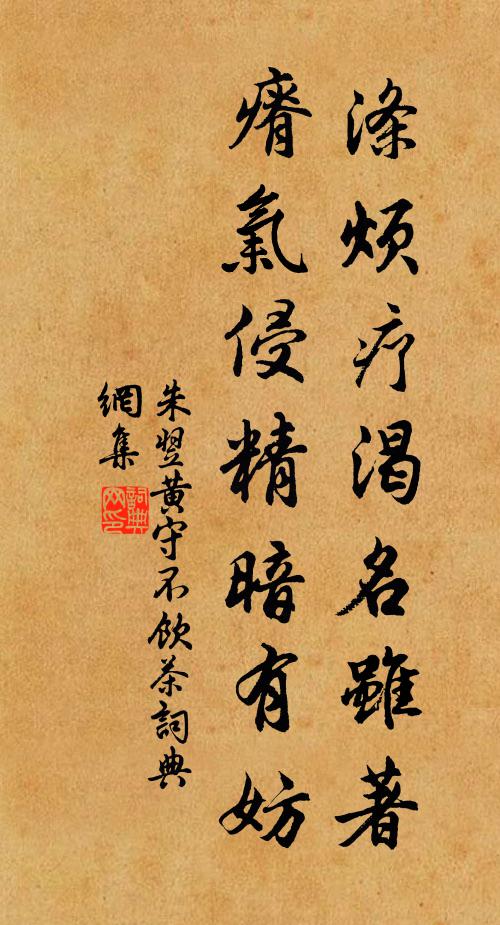 涤烦疗渴名雖著
瘠氣侵精暗有妨
朱翌黄守不飲茶詞典
網集
詞典
网印